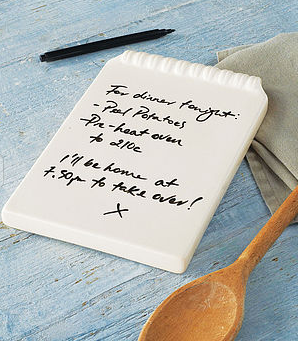 For dinner tonight:
- Peel Potatoes
- Pre-heat oven
to 210c
I'll be home at
7.30pm to take over!
X